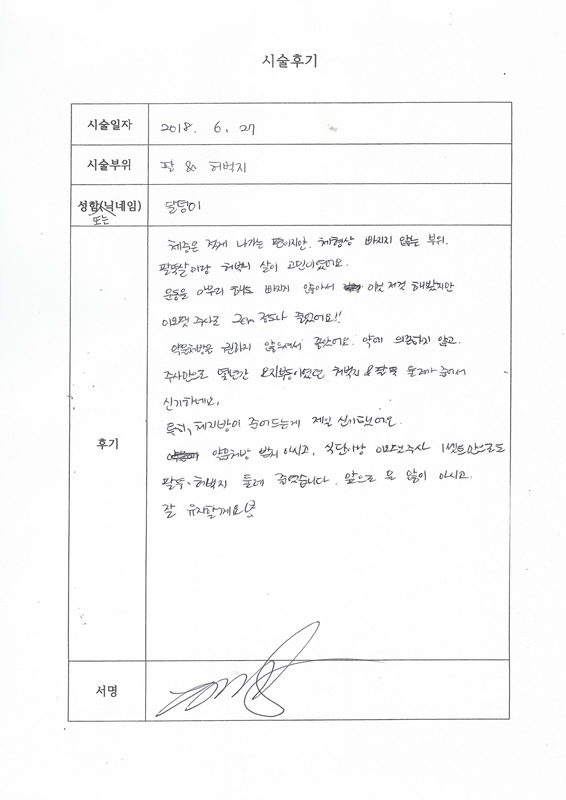 시술후기
시술일자 2018. 6. 27
시술부위 팔 & 허벅지
성함(닉네임) 달텅이
또는
체중은 적게 나가는 편이지만. 체형상 빠지지 않는 부위.
팔뚝살이랑 허벅지 살이 고민이였어요.
운동을 아무리 해도 빠지지 않아서 이것 저것 해봤지만
주사로 정도나 줄었어요!!
약물처방은 권하지 않으셔서 좋았어요. 약에 의존하지 않고.
주사만으로 몇년간 요지부동이였던 허벅지 & 팔뚝 둘레가 줄어서
신기하네요.
후기
특히, 체지방이 줄어드는게 제일 신기했어요.
약물처방 받지 아시고, 식단이랑 주사 1셋트만으로도
팔뚝. 허벅지 둘레 줄였습니다. 앞으로 아시고.
잘 유지할게요
서명